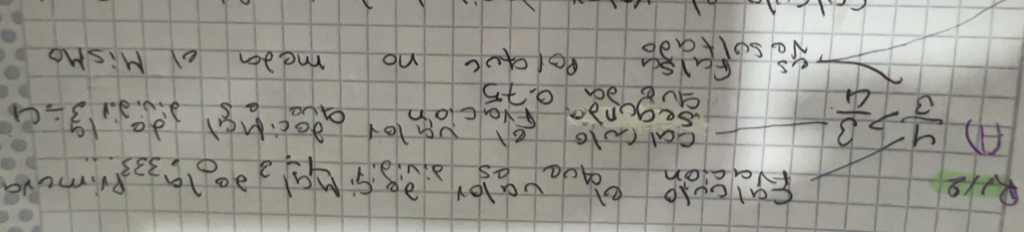 R//12
Calculo el valor decimal de la Primera
fracion que as dividir 0.333...
A) 1/3 > 3/4
Calculo el valor decimal de la
segunda fracion que as dividir 3÷4
que da 0.75
es falsa Porque no me da el Mismo
resultado